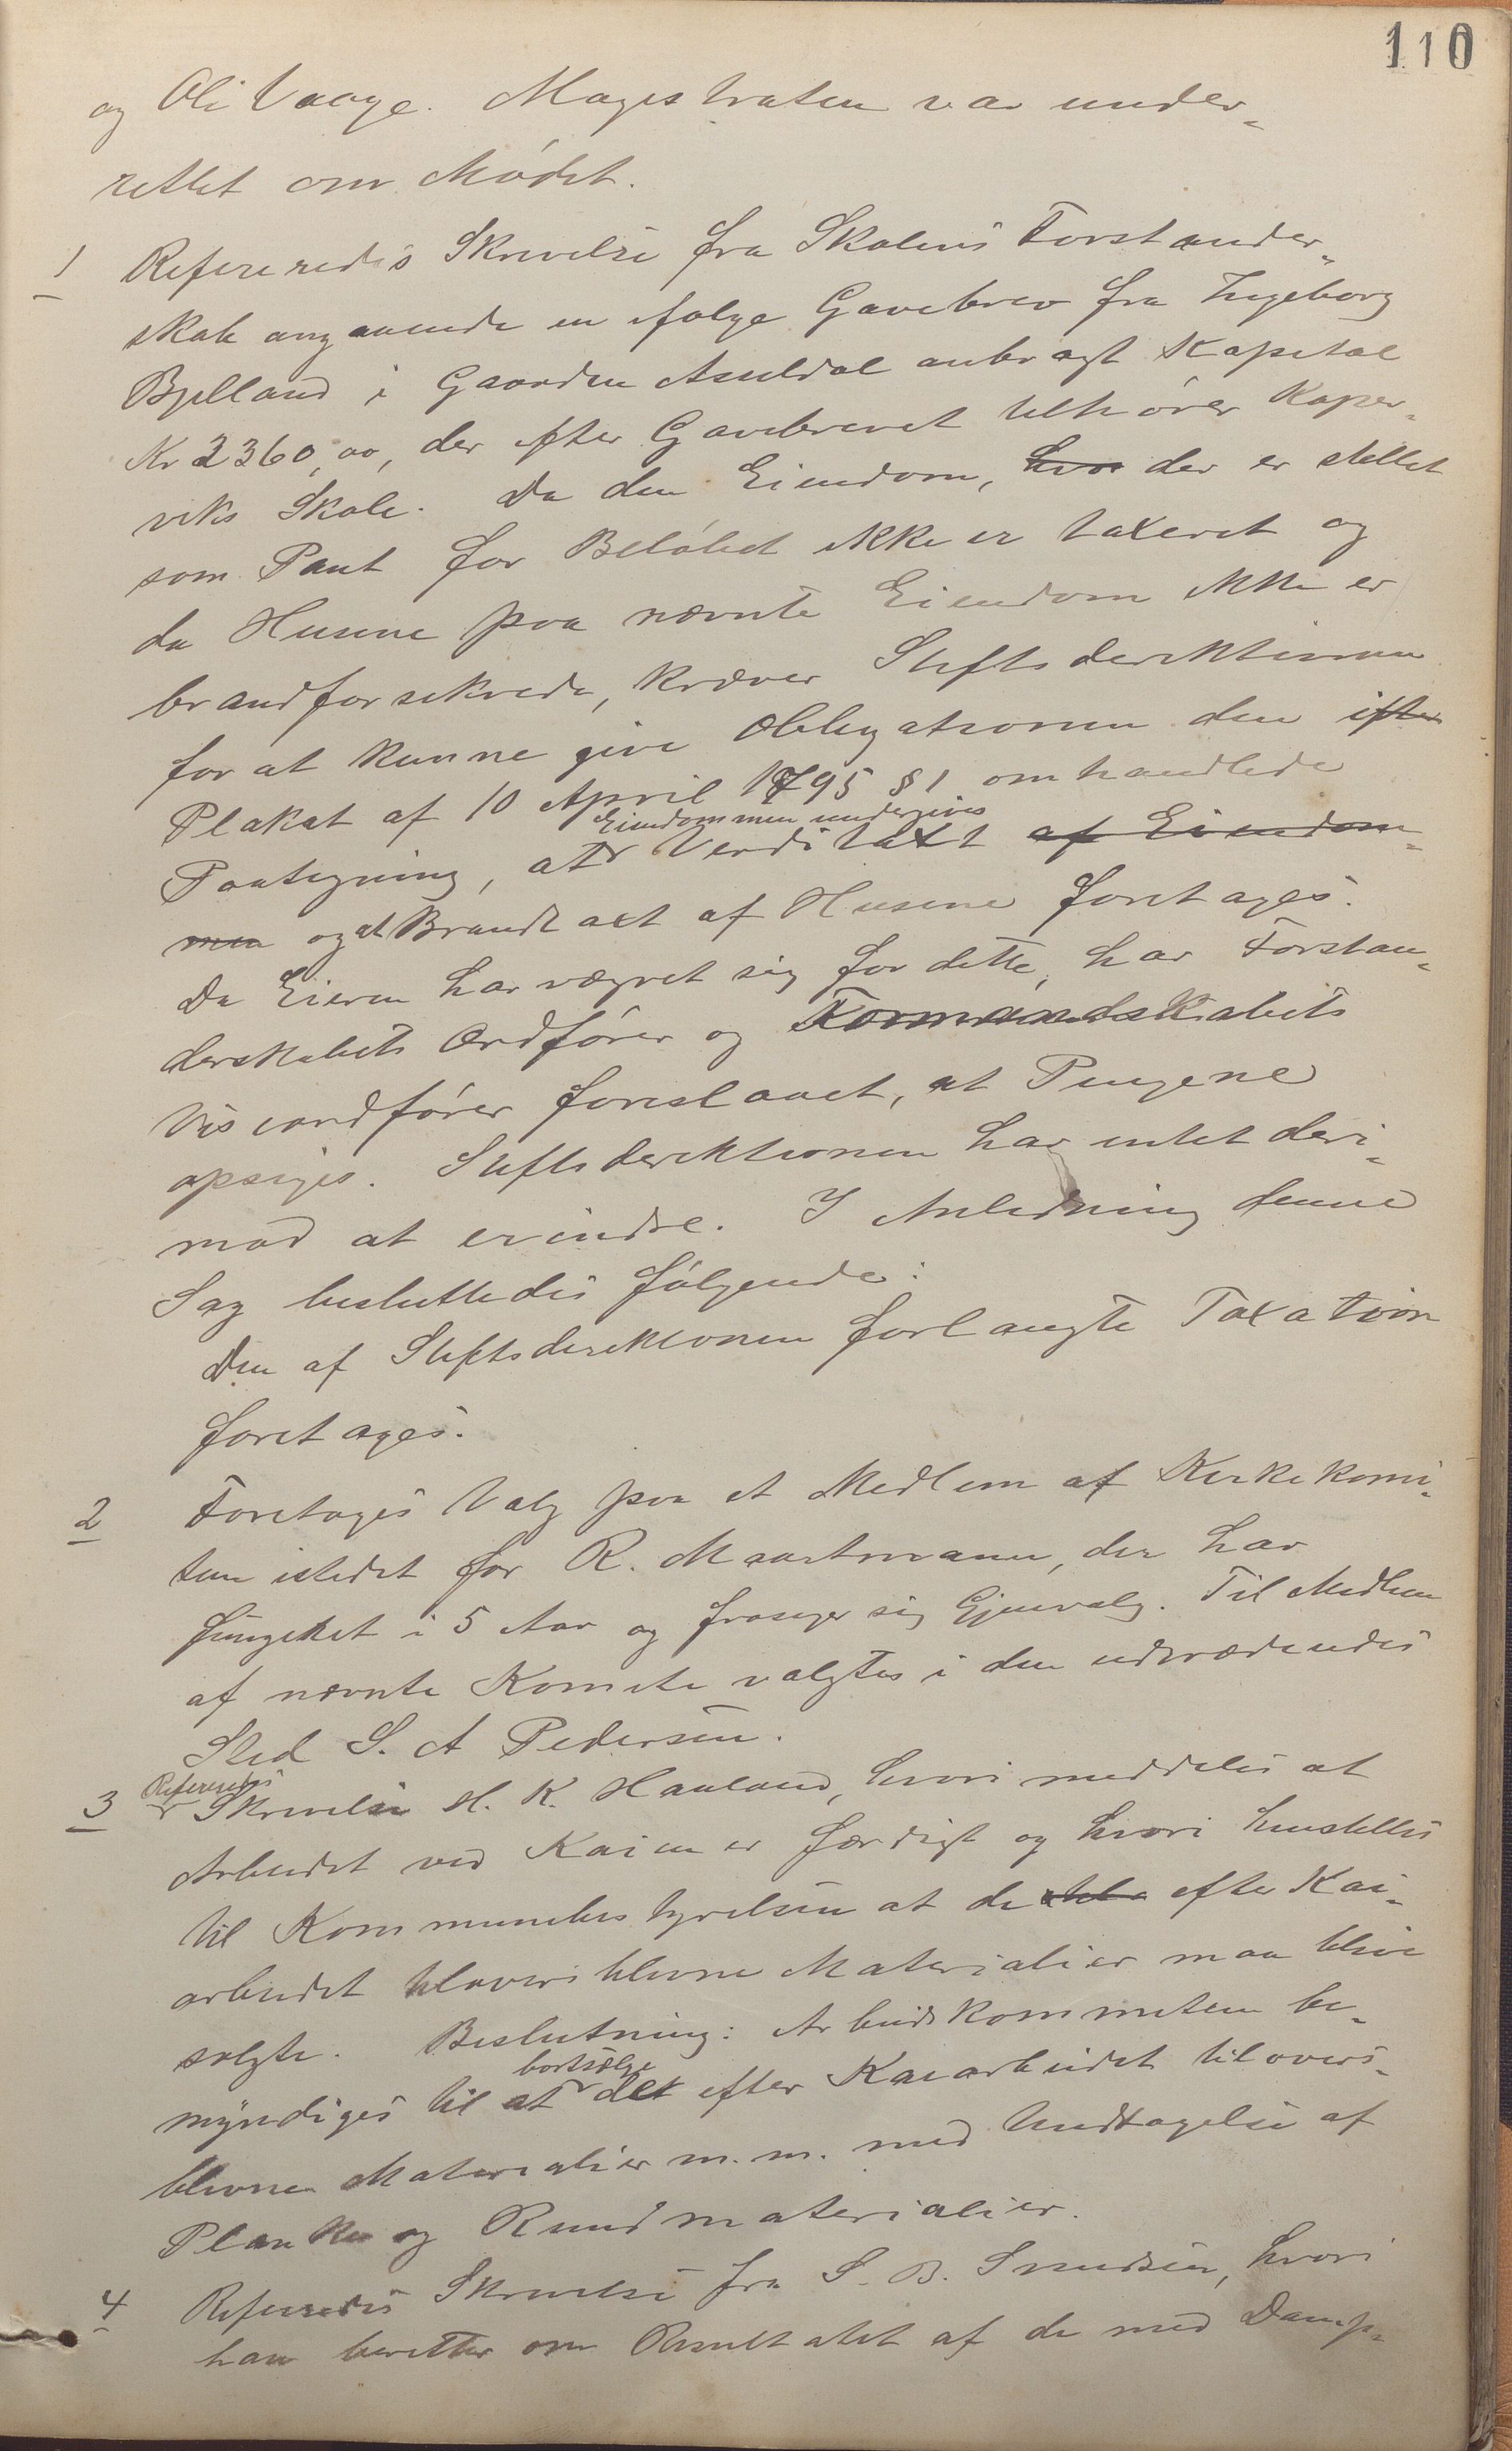 110
og Oli Vaage. Magistraten var under-
rettet om Mødet.
1 Refereredes Skrivelse fra Skolens Forstander-
skab angaaende en ifølge Gavebrev fra Ingeborg
Bjelland i Gaarden Asuldal anbragt Kapital
Kr 2360,00, der efter Gavebrevet tilhører Koper-
viks Skole. Da den Eiendom, hvor der er stillet
som Pant for Beløbet ikke er taxeret og
da Husene paa nævnte Eiendom ikke er
brandforsikrede, kræver Stiftsdirektionen
for at kunne give Obligationen den efter
Plakat af 10 April 1795 § 1 omhandlede
Eiendommen undergives
Paategning, at Verditaxt af Eiendom-
men og at Brandtaxt af Husene foretages.
Da Eieren har vægret sig for dette, har Forstan-
derskabets Ordfører og Formandskabets
Viseordfører foreslaaet, at Pengene
opsiges. Stiftsdirektionen har intet deri-
mod at erindre. I Anledning denne
Sag besluttedes følgende:
Den af Stiftsdirektionen forlangte Taxation
foretages.
2 Foretoges Valg paa et Medlem af Kirkekomi-
teen istedet for R. Maartmann, der har
fungeret i 5 Aar og frasiger sig Gjenvalg. Til Medlem
af nævnte Komite valgtes i den udtrædendes
Sted S. A Pedersen.
Refereredes
3 Skrivelse H. K. Hauland, hvori meddeles at
Arbeidet ved Kaien er færdigt og hvori henstilles
til Kommunebestyrelsen at de efter Kai-
arbeidet tiloversblevne Materialier maa blive
solgte. Beslutning: Arbeidskommiteen be-
bortsælge
myndiges til at det efter Kaiarbeidet tilovers-
blevne Materialier m. m. med Undtagelse af
Planker og Rundmaterialier.
4 Refereredes Skrivelse fra S. B. Smedsen, hvori
han beretter om Resultatet af de med Damp-